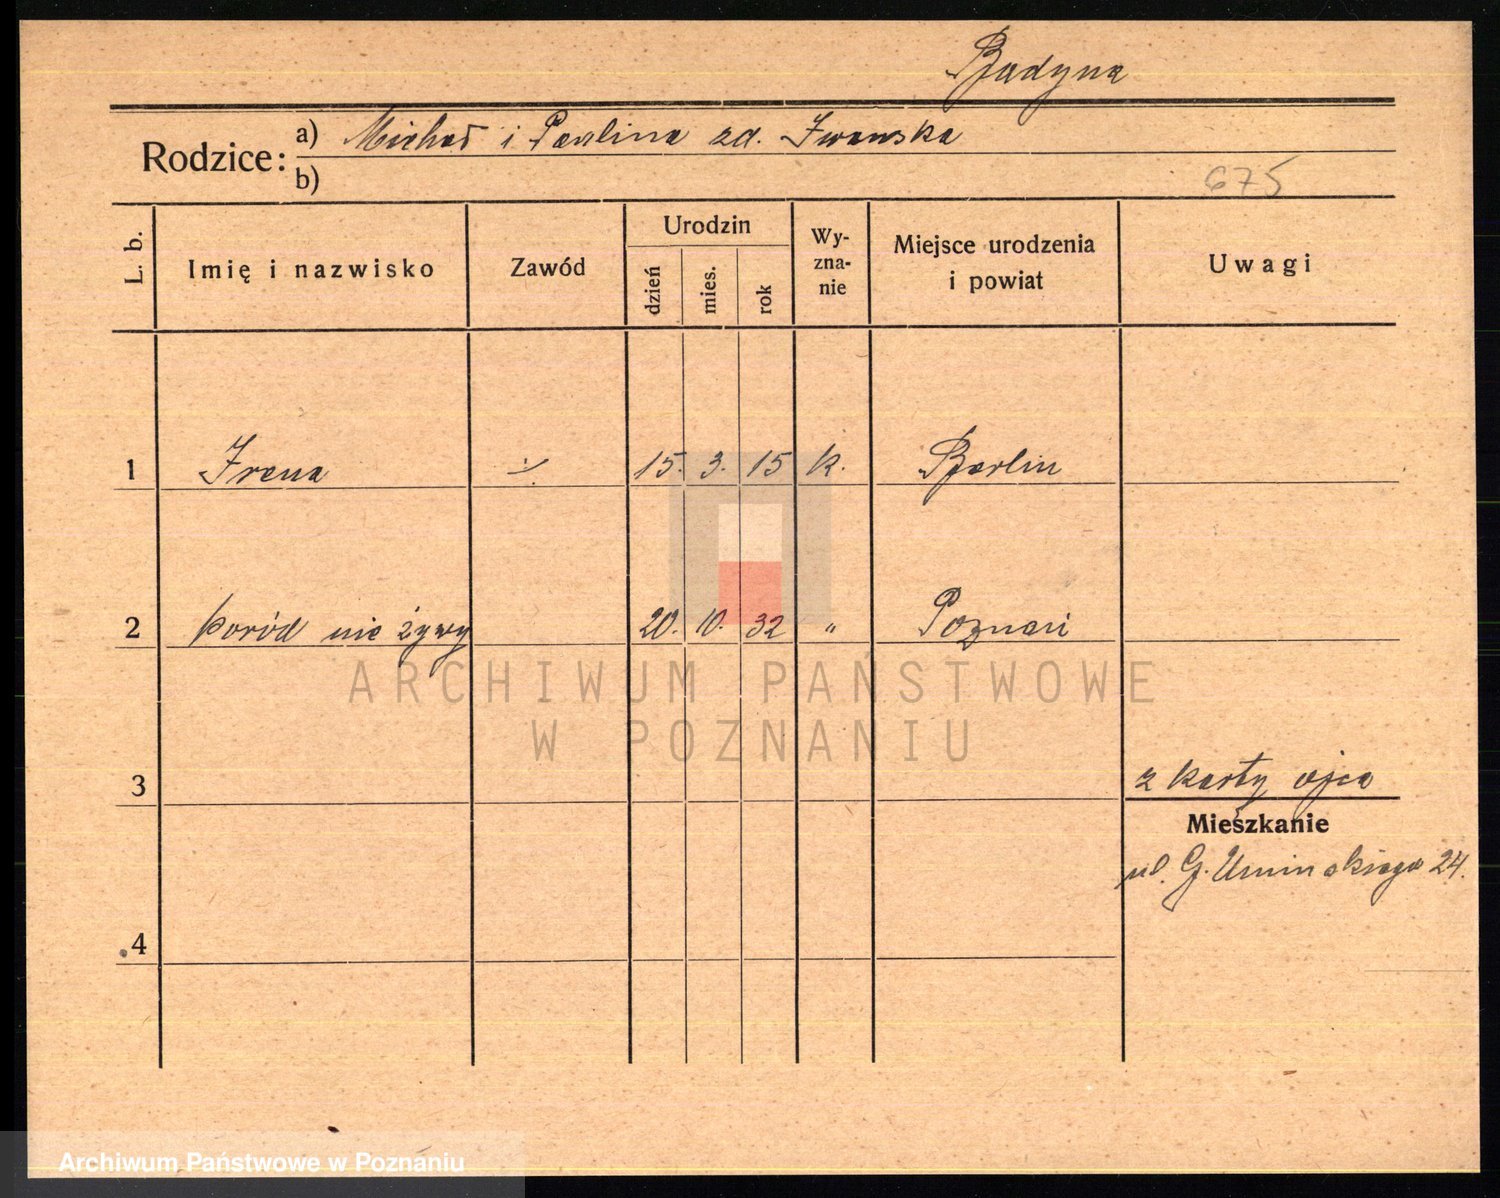 Badyna
Rodzice: a) Michał i Paulina zd. Iwanska
b)
675
L. b. Imię i nazwisko Zawód Urodzin dzień mies. rok Wy-zna-nie Miejsce urodzenia i powiat Uwagi
1 Irena 15. 3. 15 k. Berlin
2 poród nie żywy 20. 10. 32 " Poznań
ARCHIWUM PAŃSTWOWE
W POZNANIU
3 z karty ojca
Mieszkanie
ul. G. Uminskiego 24.
4
Archiwum Państwowe w Poznaniu